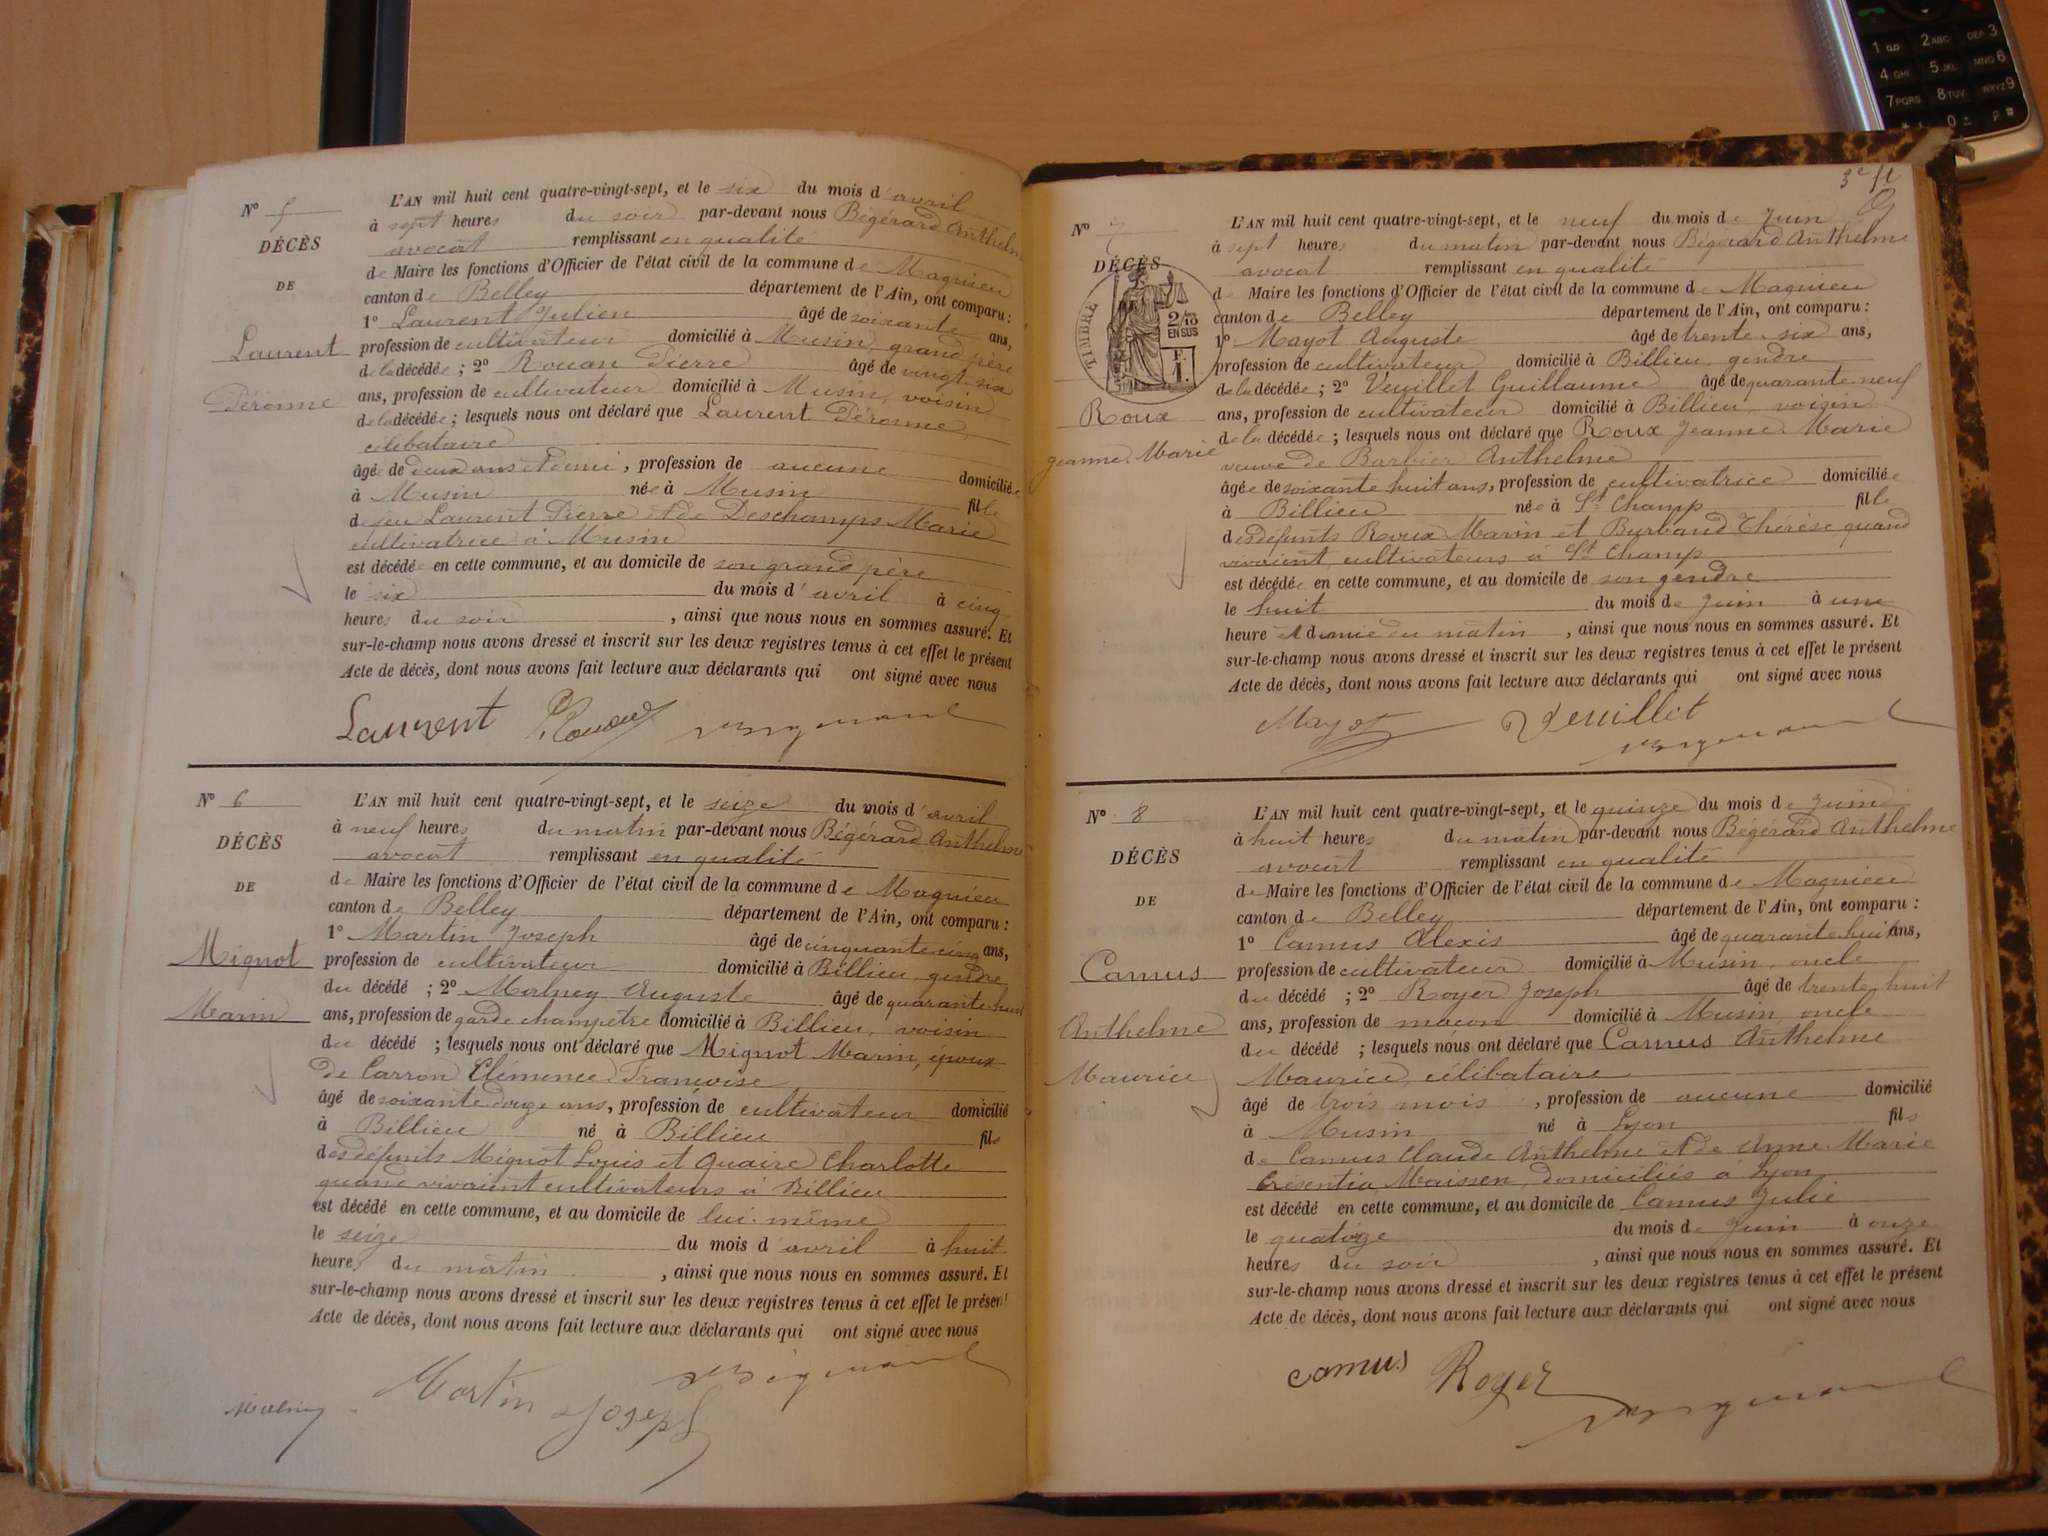 N° 5
DÉCÈS
DE
Laurent
Péronne
L'AN mil huit cent quatre-vingt-sept, et le six du mois d'avril
à sept heures du soir par-devant nous Bégérard Anthelme
avocat remplissant en qualité
de Maire les fonctions d'Officier de l'état civil de la commune de Magnieu
canton de Belley département de l'Ain, ont comparu :
1° Laurent Julien âgé de soixante ans,
profession de cultivateur domicilié à Musin, grand père
de la décédée ; 2° Rouan Pierre âgé de vingt-six
ans, profession de cultivateur domicilié à Musin, voisin
de la décédée ; lesquels nous ont déclaré que Laurent Péronne,
célibataire
âgée de deux ans et demi, profession de aucune domiciliée
à Musin née à Musin fille
de feu Laurent Pierre et de Deschamps Marie
cultivatrice à Musin
est décédée en cette commune, et au domicile de son grand père
le six du mois d'avril à cinq
heures du soir, ainsi que nous nous en sommes assuré. Et
sur-le-champ nous avons dressé et inscrit sur les deux registres tenus à cet effet le présent
Acte de décès, dont nous avons fait lecture aux déclarants qui ont signé avec nous
Laurent
N° 6
DÉCÈS
DE
Mignot
Marin
L'AN mil huit cent quatre-vingt-sept, et le seize du mois d'avril
à neuf heures du matin par-devant nous Bégérard Anthelme
avocat remplissant en qualité
de Maire les fonctions d'Officier de l'état civil de la commune de Magnieu
canton de Belley département de l'Ain, ont comparu :
1° Martin Joseph âgé de cinquante-cinq ans,
profession de cultivateur domicilié à Billieu, gendre
du décédé ; 2° Malney Auguste âgé de quarante-huit
ans, profession de garde champêtre domicilié à Billieu, voisin
du décédé ; lesquels nous ont déclaré que Mignot Marin, époux
de Carron Clémence Françoise
âgé de soixante-douze ans, profession de cultivateur domicilié
à Billieu né à Billieu fils
des défunts Mignot Louis et Quaire Charlotte
quand vivaient cultivateurs à Billieu
est décédé en cette commune, et au domicile de lui-même
le seize du mois d'avril à huit
heures du matin, ainsi que nous nous en sommes assuré. Et
sur-le-champ nous avons dressé et inscrit sur les deux registres tenus à cet effet le présent
Acte de décès, dont nous avons fait lecture aux déclarants qui ont signé avec nous
Malney Martin Joseph
3e
N° 7
DÉCÈS
TIMBRE
2/10
EN SUS
F.
1.
Roux
Jeanne-Marie
L'AN mil huit cent quatre-vingt-sept, et le neuf du mois de Juin
à sept heures du matin par-devant nous Bégérard Anthelme
avocat remplissant en qualité
de Maire les fonctions d'Officier de l'état civil de la commune de Magnieu
canton de Belley département de l'Ain, ont comparu :
1° Mayot Auguste âgé de trente-six ans,
profession de cultivateur domicilié à Billieu, gendre
de la décédée ; 2° Veuillet Guillaume âgé de quarante-neuf
ans, profession de cultivateur domicilié à Billieu, voisin
de la décédée ; lesquels nous ont déclaré que Roux Jeanne-Marie
veuve de Barbier Anthelme
âgée de soixante huit ans, profession de cultivatrice domiciliée
à Billieu née à St Champ fille
des défunts Roux Marin et Burbaud Thérèse quand
vivaient cultivateurs à St Champ
est décédée en cette commune, et au domicile de son gendre
le huit du mois de Juin à une
heure et demie du matin, ainsi que nous nous en sommes assuré. Et
sur-le-champ nous avons dressé et inscrit sur les deux registres tenus à cet effet le présent
Acte de décès, dont nous avons fait lecture aux déclarants qui ont signé avec nous
Mayot Veuillet
N° 8
DÉCÈS
DE
Camus
Anthelme
Maurice
L'AN mil huit cent quatre-vingt-sept, et le quinze du mois de Juin
à huit heures du matin par-devant nous Bégérard Anthelme
avocat remplissant en qualité
de Maire les fonctions d'Officier de l'état civil de la commune de Magnieu
canton de Belley département de l'Ain, ont comparu :
1° Camus Alexis âgé de quarante-huit ans,
profession de cultivateur domicilié à Musin, oncle
du décédé ; 2° Royer Joseph âgé de trente-huit
ans, profession de maçon domicilié à Musin, oncle
du décédé ; lesquels nous ont déclaré que Camus Anthelme
Maurice, célibataire
âgé de trois mois, profession de aucune domicilié
à Musin né à Lyon fils
de Camus Claude Anthelme et de Anne-Marie
Crésentia Maissen, domiciliés à Lyon
est décédé en cette commune, et au domicile de Camus Julie
le quatorze du mois de Juin à onze
heures du soir, ainsi que nous nous en sommes assuré. Et
sur-le-champ nous avons dressé et inscrit sur les deux registres tenus à cet effet le présent
Acte de décès, dont nous avons fait lecture aux déclarants qui ont signé avec nous
Camus Royer
1
2 ABC
DEF 3
4 GHI
5 JKL
MNO 6
7 PQRS
8 TUV
WXYZ 9
0